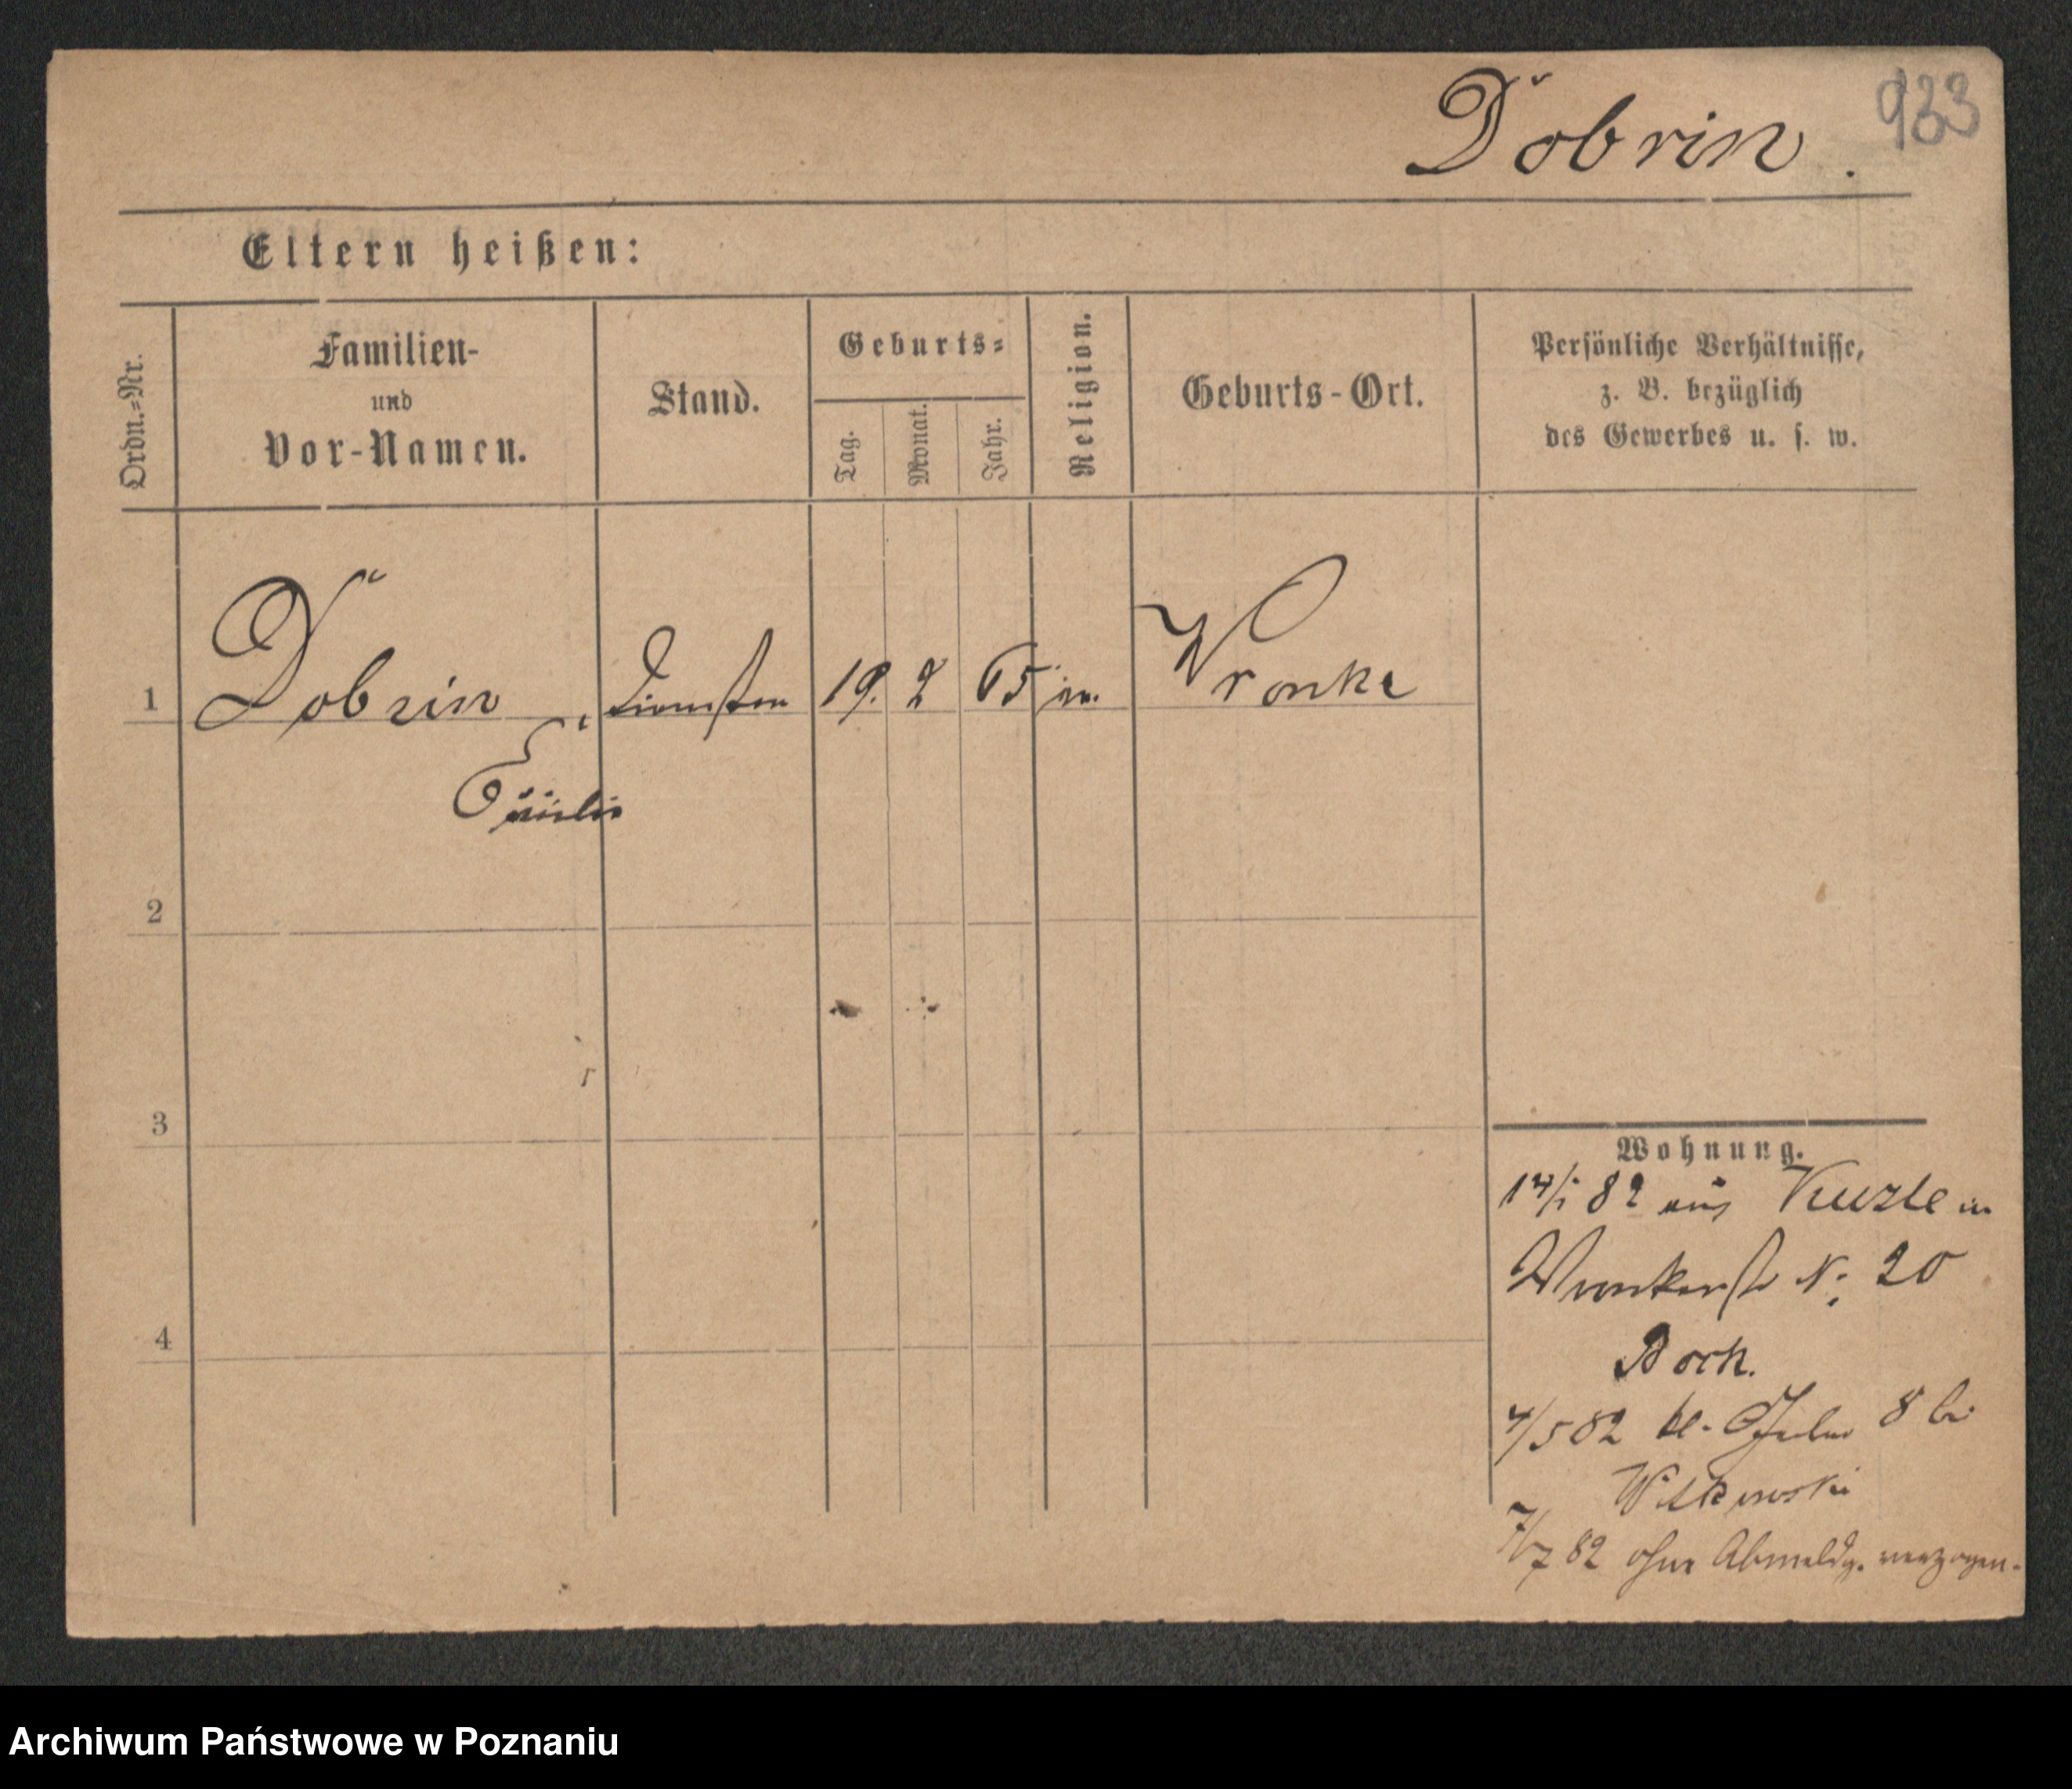 Döbrin.
933
Eltern heißen:
Ordn.=Nr.
Familien-
und
Vor-Namen.
Stand.
Geburts=
Tag.
Monat.
Jahr.
Religion.
Geburts-Ort.
Persönliche Verhältnisse,
z. B. bezüglich
des Gewerbes u. s. w.
1 Döbrin 19. 2 65 Wronke
2
3
4
Wohnung.
82 aus
Wronkerst N: 20
82 8 bei
Witkowski
7/7 82 ohne Abmeldg. verzogen.
Archiwum Państwowe w Poznaniu